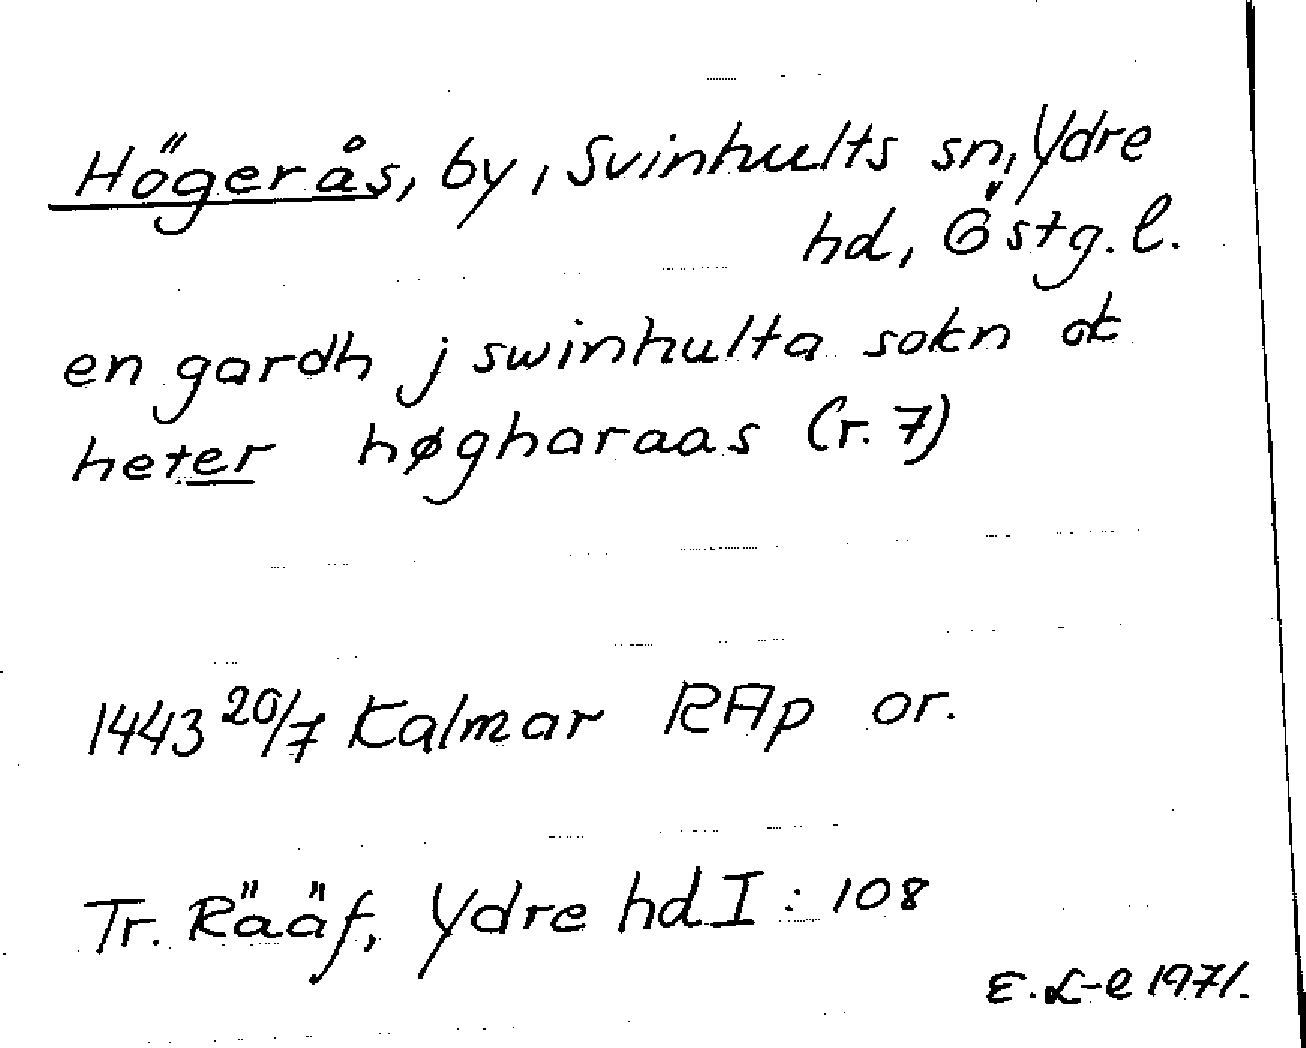 Högerås, by, Svinhults sn, Ydre
hd, Östg. l.
en gardh j swinhulta sokn ok
heter høgharaas (r. 7)
1443 20/7 Kalmar RAp or.
Tr. Rääf, Ydre hd I : 108
E. L-e 1971.